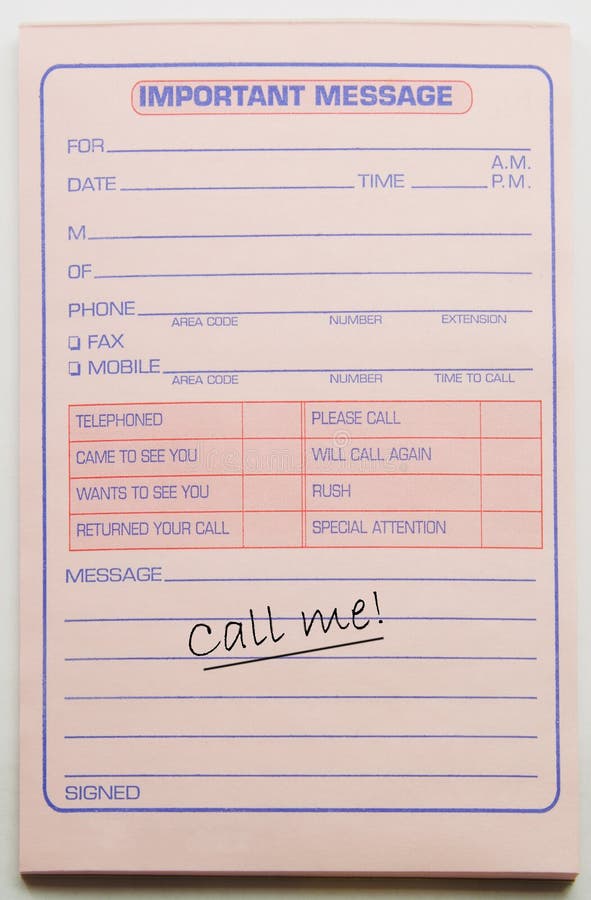 IMPORTANT MESSAGE
FOR
A.M.
DATE TIME P.M.
M
OF
PHONE
AREA CODE NUMBER EXTENSION
FAX
MOBILE
AREA CODE NUMBER TIME TO CALL
TELEPHONED PLEASE CALL
CAME TO SEE YOU WILL CALL AGAIN
WANTS TO SEE YOU RUSH
RETURNED YOUR CALL SPECIAL ATTENTION
MESSAGE
call me!
SIGNED